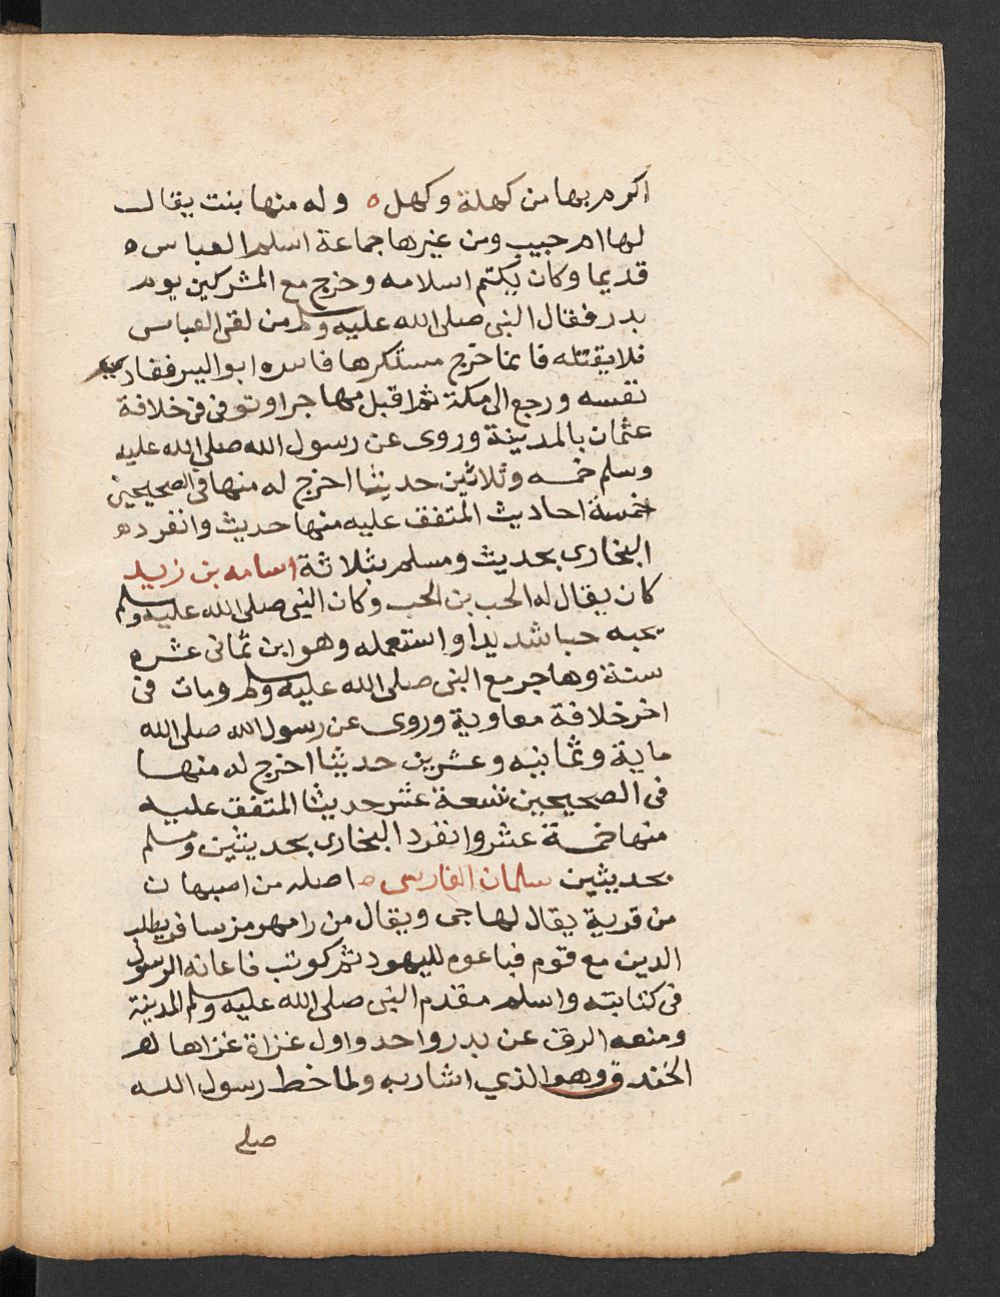 اكرم بها من كهلة وكهل ه وله منها بنت يقال
لها ام حبيب ومن غيرها جماعة اسلم العباس ه
قديما وكان يكتم اسلامه وخرج مع المشركين يوم
بدر فقال النبى صلى الله عليه وسلم من لقى العباس
فلا يقتله فانما خرج مستكرها فاسره ابو اليسر ففادى
نفسه ورجع الى مكة ثم اقبل مهاجرا وتوفى فى خلافة
عثمان بالمدينة وروى عن رسول الله صلى الله عليه
وسلم خمسه وثلاثين حديثا اخرج له منها فى الصحيحين
خمسة احاديث المتفق عليه منها حديث وانفرد ه
البخارى بحديث ومسلم بثلاثة اسامه بن زيد
كان يقال له الحب بن الحب وكان النبى صلى الله عليه وسلم
يحبه حبا شديدا واستعمله وهو ابن ثمانى عشره
سنة وهاجر مع النبى صلى الله عليه وسلم ومات فى
اخر خلافة معاوية وروى عن رسول الله صلى الله
ماية وثمانيه وعشرين حديثا اخرج له منها
فى الصحيحين تسعة عشر حديثا المتفق عليه
منها خمسة عشر وانفرد البخارى بحديثين ومسلم
بحديثين سلمان الفارسى ه اصله من اصبهان
من قرية يقال لها جى ويقال من رامهرمز سافر يطلب
الدين مع قوم فباعوه لليهود ثم كوتب فاعانه الرسول
فى كتابته واسلم مقدم النبى صلى الله عليه وسلم المدينة
ومنعه الرق عن بدر واحد واول غزاة غزاها له
الخندق وهو الذي اشار به ولما خط رسول الله
صلى